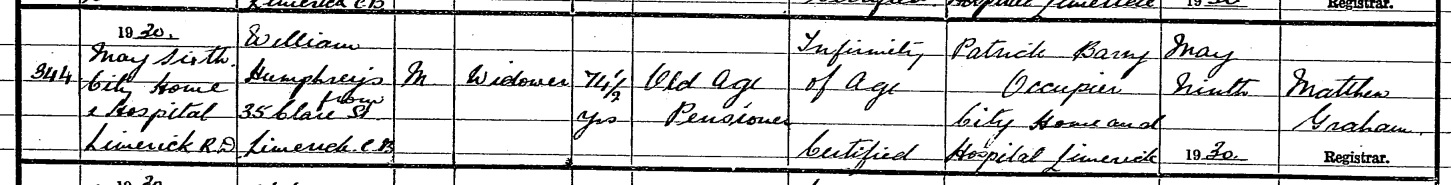 Limerick C.B
Hospital Limerick
1930
Registrar.
344
1930.
May Sixth
City Home
& Hospital
Limerick R.D
William
Humphreys
from
35 Clare St.
Limerick C.B
M
Widower
74 1/2
yrs
Old Age
Pensioner
Infirmity
of Age
Certified
Patrick Barry
Occupier
City Home and
Hospital Limerick
May
Ninth
1930.
Matthew
Graham.
Registrar.
1930